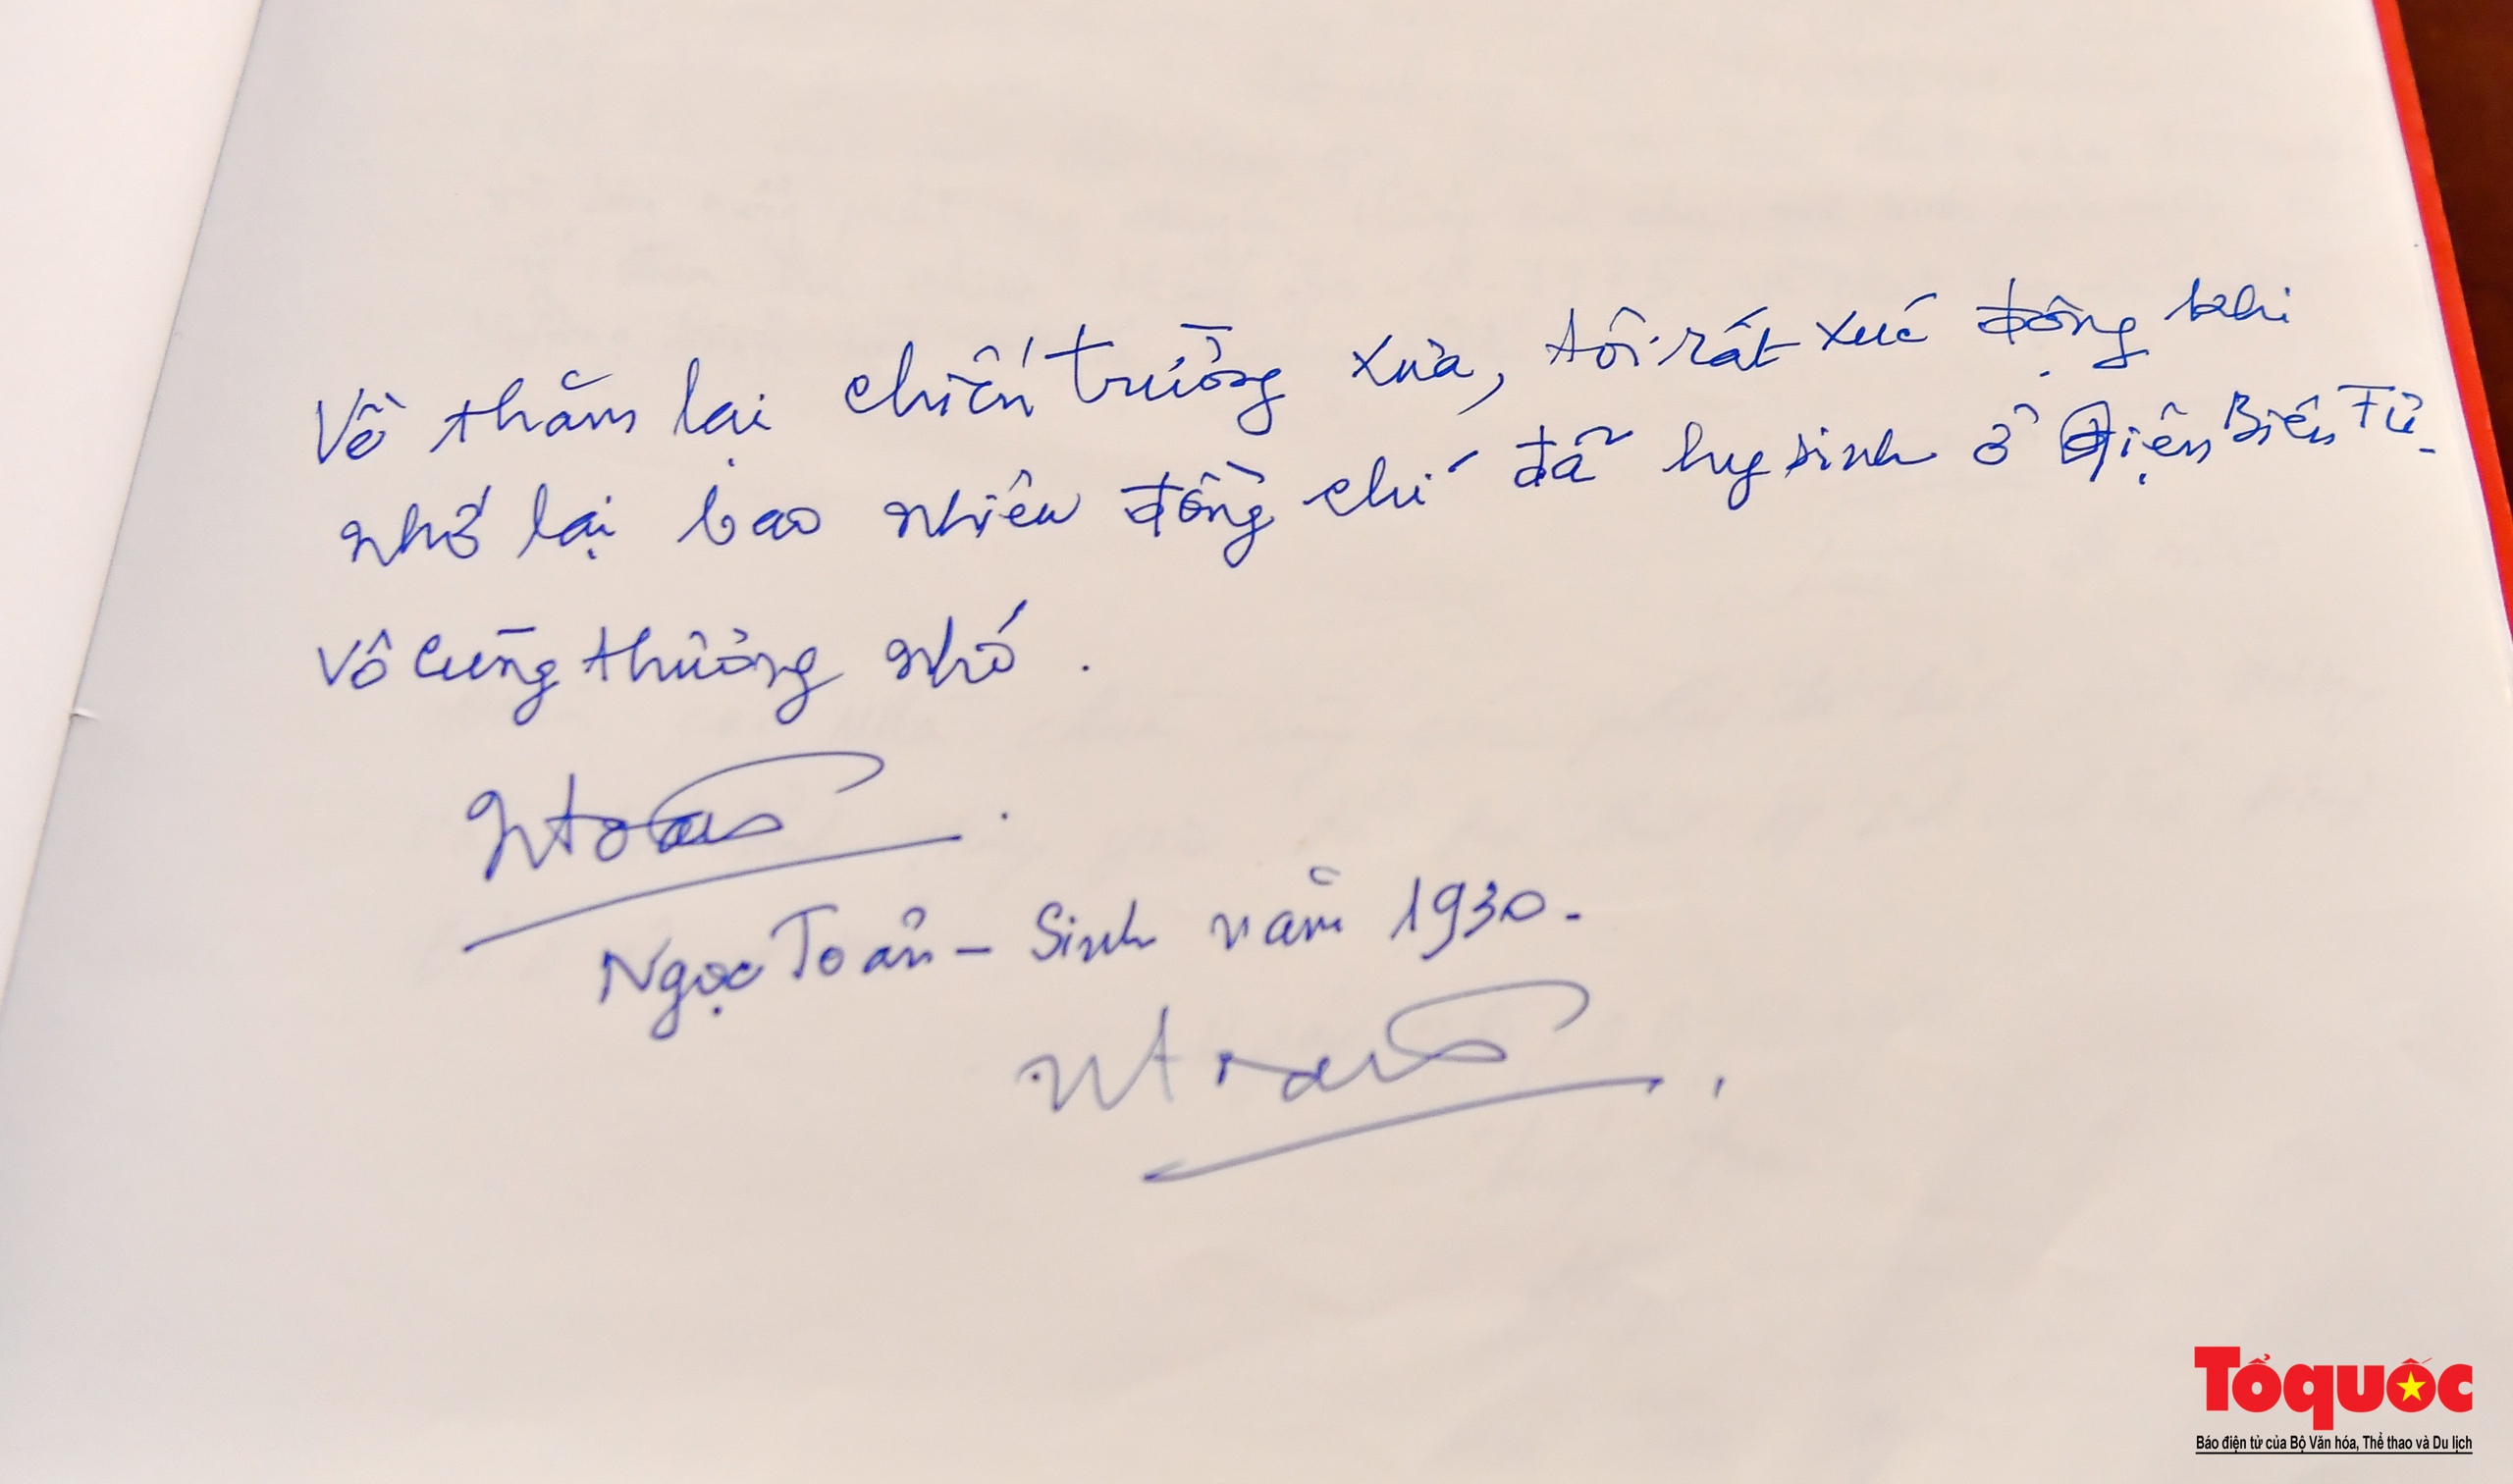 Về thăm lại chiến trường xưa, tôi rất xúc động khi
nhớ lại bao nhiêu đồng chí đã hy sinh ở Điện Biên Phủ.
Vô cùng thương nhớ.
Ngọc Toản - Sinh năm 1930.
Tổ quốc
Báo điện tử của Bộ Văn hóa, Thể thao và Du lịch